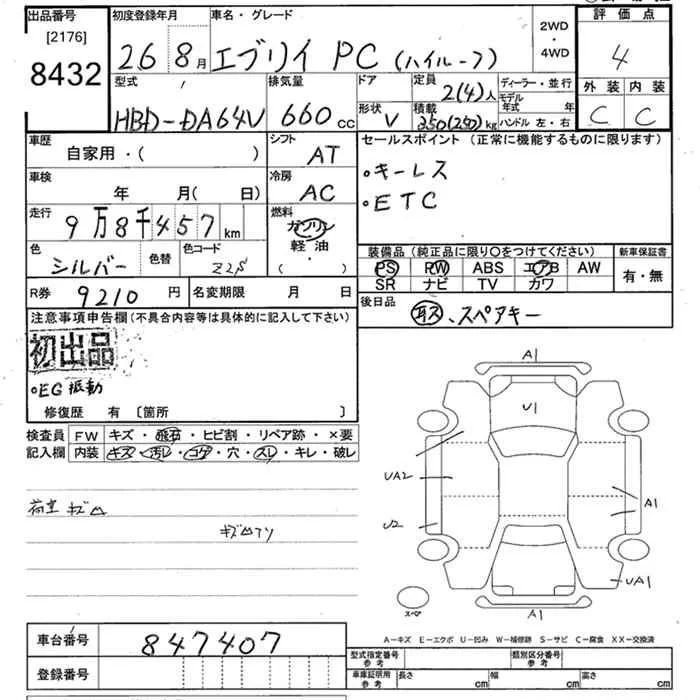 出品番号 初度登録年月 車名・グレード 2WD・4WD 評価点
[2176]
8432 26 8月 エブリイ PC (ハイルーフ) 4
型式 排気量 ドア 定員 2(4)人 ディーラー・並行 外装 内装
モデル年式 年
HBD-DA64V 660cc 形状 V 積載 350(250)kg ハンドル 左・右 C C
車歴 シフト セールスポイント (正常に機能するものに限ります)
自家用・( ) AT
・キーレス
車検 冷房
年 月( 日) AC ・ETC
走行 燃料
9万8千457km ガソリン
軽油
( )
色 色替 色コード 装備品 (純正品に限り○をつけてください) 新車保証書
シルバー Z2S PS PW ABS エアB AW 有・無
SR ナビ TV カワ
R券 9210円 名変期限 月 日 後日品
取ス、スペアキー
注意事項申告欄 (不具合内容等は具体的に記入して下さい)
初出品
・EG振動
修復歴 有 [箇所 ]
検査員 FW キズ・飛石・ヒビ割・リペア跡・×要
記入欄 内装 キズ・汚レ・コゲ・穴・スレ・キレ・破レ
荷室キズ凹
キズ凹アリ
A1
U1
UA2
U2
A1
UA1
A1
スペア
A−キズ E−エクボ U−凹み W−補修跡 S−サビ C−腐食 XX−交換済
車台番号 847407
型式指定番号 参考 類別区分番号 参考
登録番号 車庫証明用 参考 長さ cm 幅 cm 高さ cm